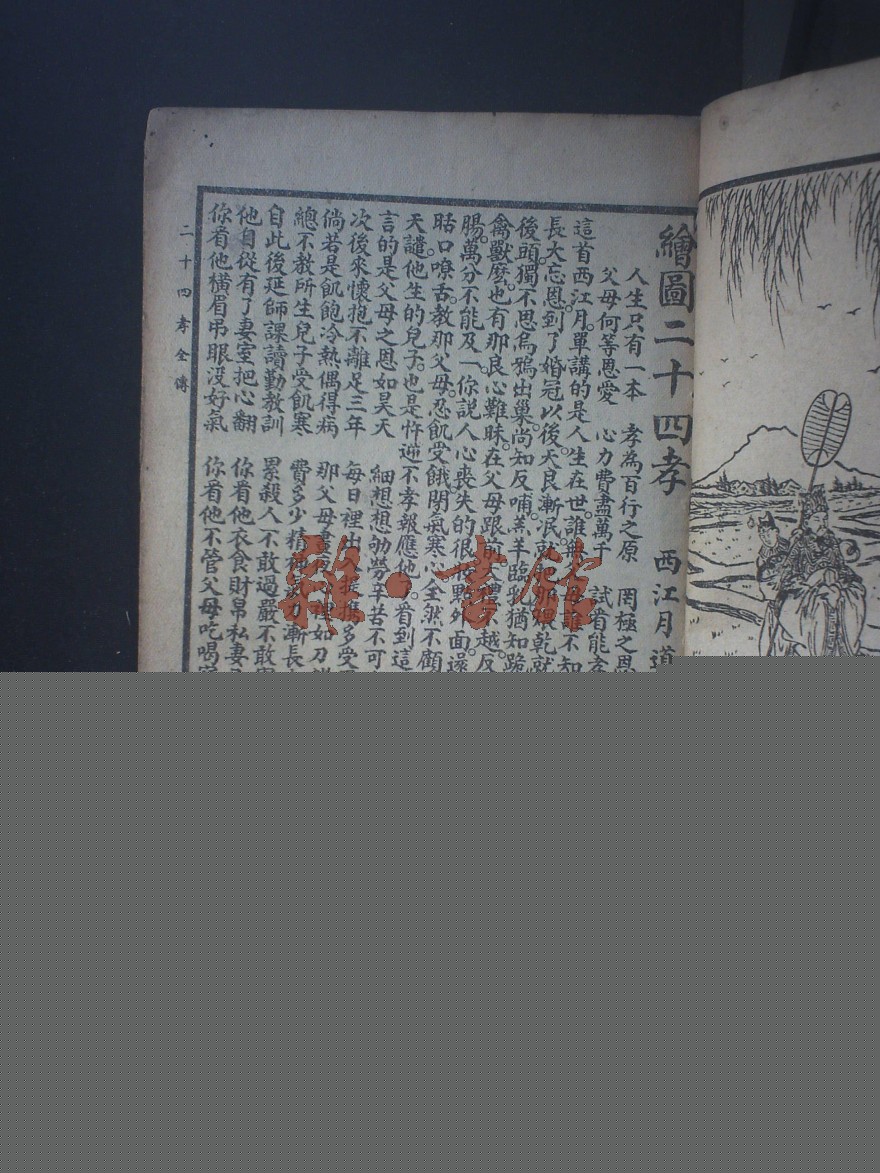 繪圖二十四孝 西江月
人生只有一本 孝為百行之原 罔極之恩
父母何等恩愛 心力費盡萬千 試看能孝
這首西江月單講的是人生在世。誰無 不知
長大忘恩到了婚冠以後天良漸泯就 那 乾就
後頭。獨不思烏鴉出巢。尚知反哺。羔羊臨乳。猶知跪
禽獸麽。也有那良心難昧。在父母跟前 越反
腸。萬分不能及一。你說人心喪失的很 點外面。還
聒口嘹舌。教那父母。忍飢受餓閉氣寒心。全然不顧
天譴。他生的兒子。也是忤逆不孝報應他。看到這
言的是父母之恩如昊天 細想想劬勞辛苦不可
次後來懷抱不離足三年 每日裡出 多受
倘若是飢飽冷熱偶得病 那父母 如刀
總不教所生兒子受飢寒 費多少精 漸長
自此後延師課讀勤教訓 累殺人不敢過嚴不敢
他自從有了妻室把心翻 你看他衣食財帛私妻
你看他橫眉吊眼沒好氣 你看他不管父母吃喝
二十四孝全傳
雜·書館